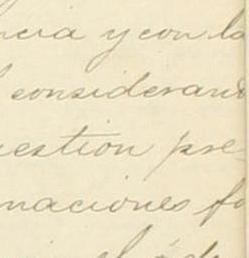 ncia y con la
considerand
uestion pre
maciones fo
el